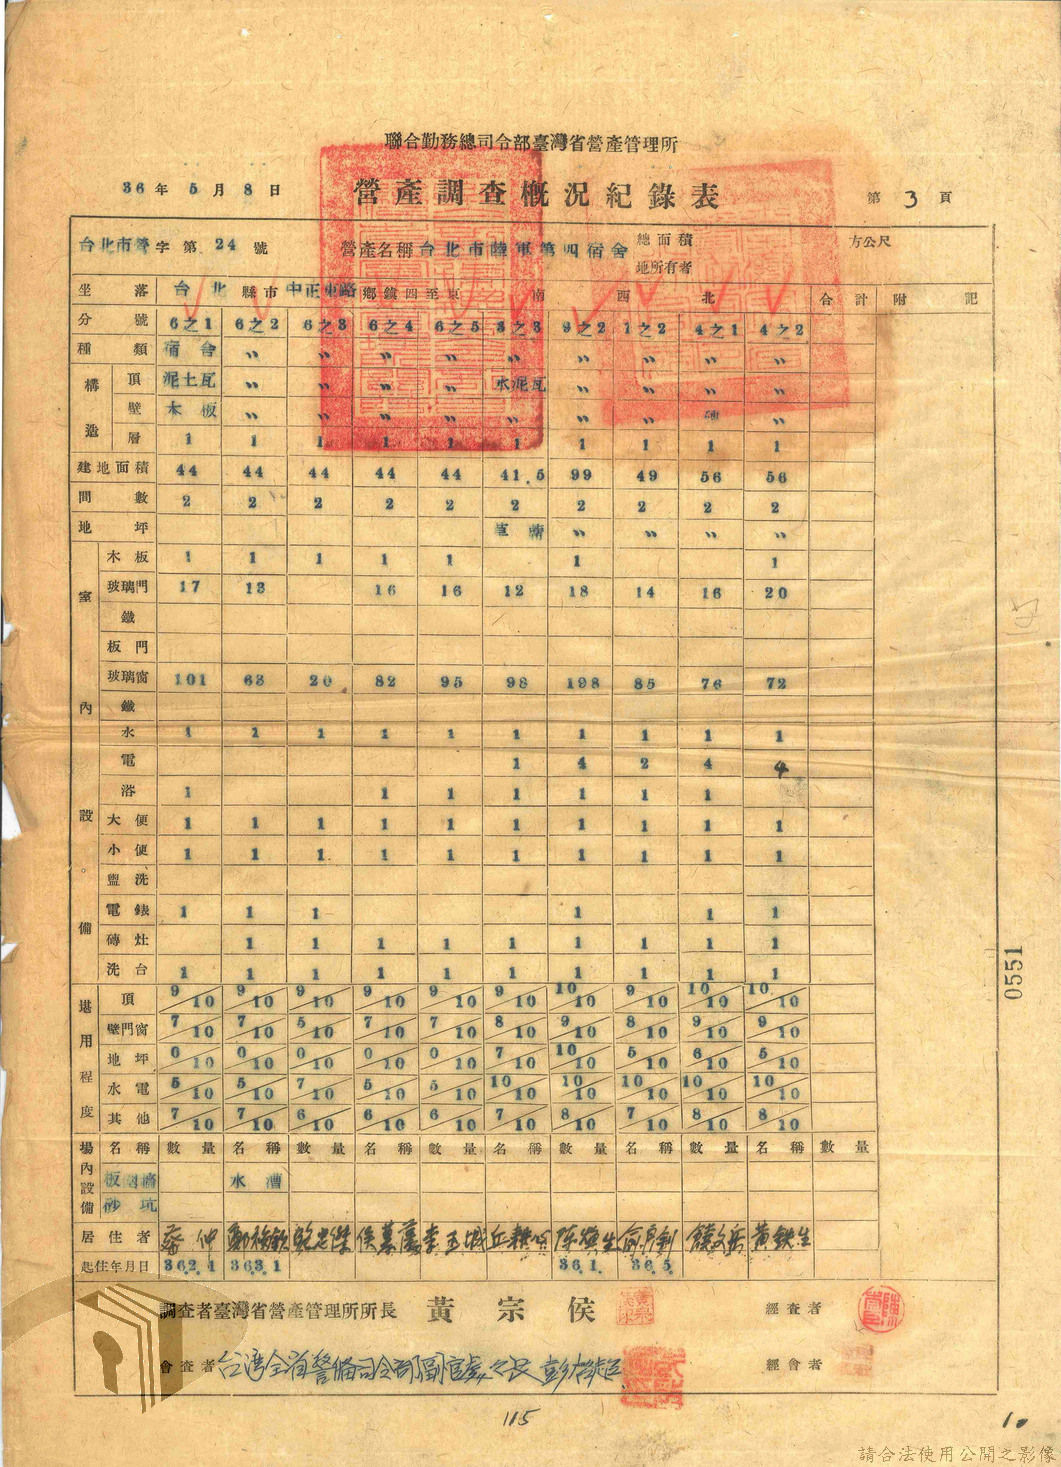 聯合勤務總司令部臺灣省營產管理所
36年5月8日 營產調查概況紀錄表 第3頁
台北市營字第24號 營產名稱台北市陸軍第四宿舍 總面積 方公尺
地所有者
坐落 台北縣市中正東路鄉鎮四至東 南 西 北 合計 附記
分號 6之1 6之2 6之3 6之4 6之5 3之3 9之2 1之2 4之1 4之2
種類 宿舍 〃 〃 〃 〃 〃 〃 〃 〃 〃
構造 頂 泥土瓦 〃 〃 〃 〃 水泥瓦 〃 〃 〃 〃
壁 木板 〃 〃 〃 〃 〃 〃 〃 〃
層 1 1 1 1 1 1 1 1 1 1
建地面積 44 44 44 44 44 41.5 99 49 56 56
間數 2 2 2 2 2 2 2 2 2 2
地坪 〃 〃 〃 〃
室內設備 木板 1 1 1 1 1 1 1
玻璃門 17 13 16 16 12 18 14 16 20
鐵
板門
玻璃窗 101 63 20 82 95 98 198 85 76 72
鐵
水 1 1 1 1 1 1 1 1 1 1
電 1 4 2 4 4
浴 1 1 1 1 1 1 1
大便 1 1 1 1 1 1 1 1 1 1
小便 1 1 1 1 1 1 1 1 1 1
盥洗
電錶 1 1 1 1 1 1
磚灶 1 1 1 1 1 1 1 1 1
洗台 1 1 1 1 1 1 1 1 1 1
堪用程度 頂 9/10 9/10 9/10 9/10 9/10 9/10 10/10 9/10 10/10 10/10
壁門窗 7/10 7/10 5/10 7/10 7/10 8/10 9/10 8/10 9/10 9/10
地坪 0/10 0/10 0/10 0/10 0/10 7/10 10/10 5/10 6/10 5/10
水電 5/10 5/10 7/10 5/10 5/10 10/10 10/10 10/10 10/10 10/10
其他 7/10 7/10 6/10 6/10 6/10 7/10 8/10 7/10 8/10 8/10
場內設備 名稱 數量 名稱 數量 名稱 數量 名稱 數量 名稱 數量 名稱 數量
水漕
砂坑
居住者 蔡仲 李玉城 丘耕心 陳煥生 黃鉄生
起住年月日 36.2.1 36.3.1 36.1. 36.5.
調查者臺灣省營產管理所所長 黃宗侯 經查者
會查者 台灣全省警備司令部副官處處長 經會者
115
10
0551
請合法使用公開之影像